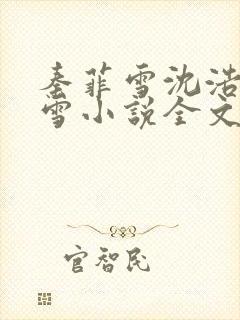 秦菲雪沈浩
雪小说全文
官智民